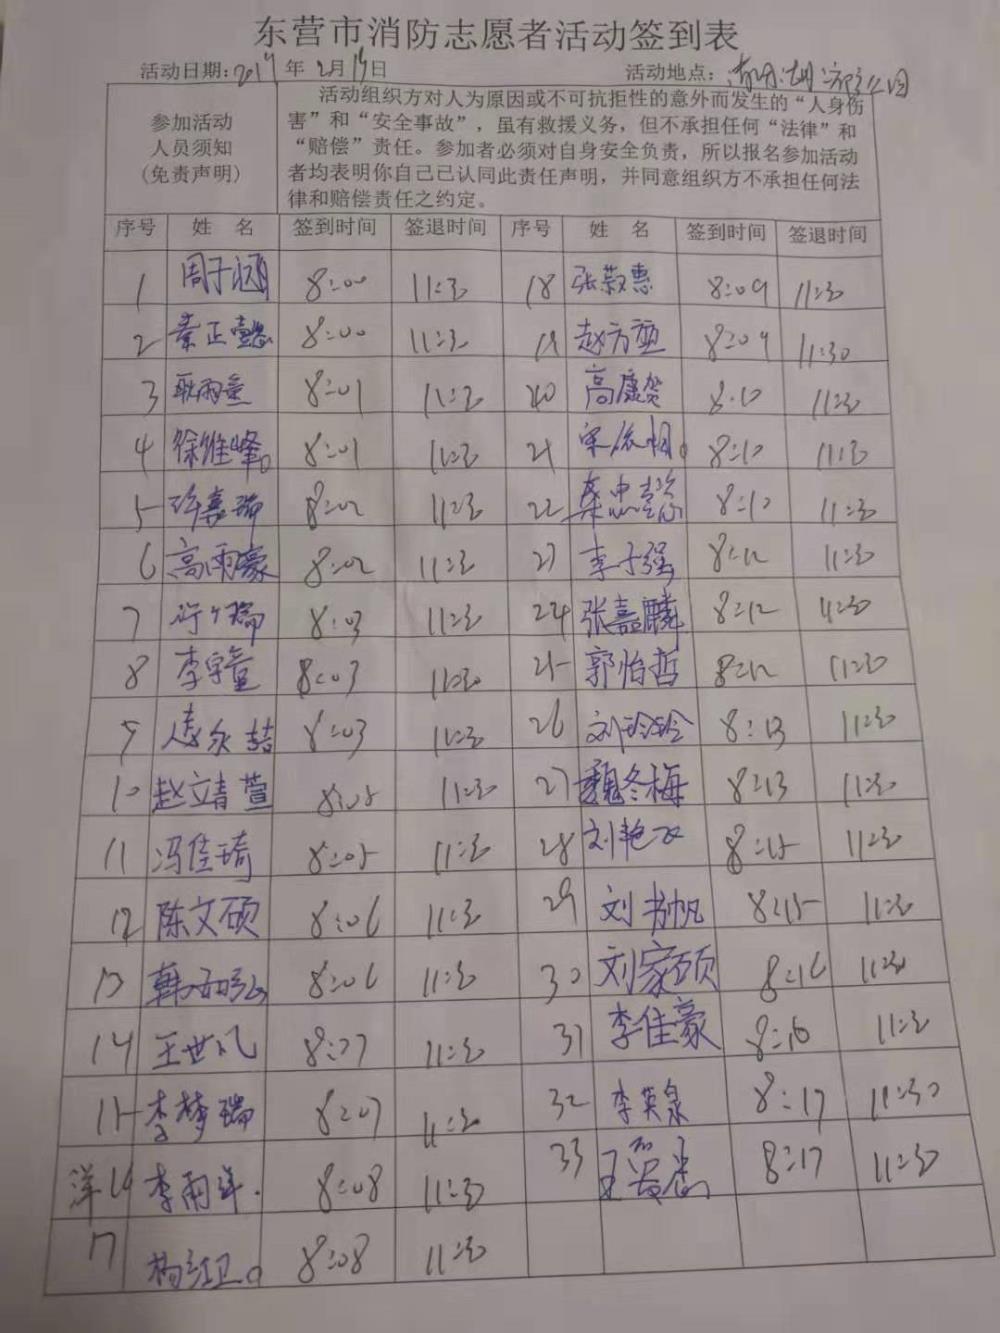 东营市消防志愿者活动签到表
活动日期:2019年2月19日 活动地点:
参加活动
人员须知
(免责声明)
活动组织方对人为原因或不可抗拒性的意外而发生的“人身伤
害”和“安全事故”，虽有救援义务，但不承担任何“法律”和
“赔偿”责任。参加者必须对自身安全负责，所以报名参加活动
者均表明你自己已认同此责任声明，并同意组织方不承担任何法
律和赔偿责任之约定。
序号 姓 名 签到时间 签退时间 序号 姓 名 签到时间 签退时间
1 周子涵 8:00 11:30 18 张敬惠 8:09 11:30
2 秦正懿 8:00 11:30 19 赵方 8:09 11:30
3 耿雨萱 8:01 11:30 20 高康贺 8:10 11:30
4 徐维峰 8:01 11:30 21 宋 8:10 11:30
5 许嘉瑞 8:02 11:30 22 8:10 11:30
6 高雨豪 8:02 11:30 23 李子强 8:12 11:30
7 8:03 11:30 24 张嘉麟 8:12 11:30
8 李宇童 8:03 11:30 25 郭怡哲 8:12 11:30
9 8:03 11:30 26 刘玲玲 8:13 11:30
10 赵立靖萱 8:05 11:30 27 魏冬梅 8:13 11:30
11 冯佳琦 8:05 11:30 28 刘艳飞 8:15 11:30
12 陈文硕 8:06 11:30 29 刘书帆 8:15 11:30
13 韩 8:06 11:30 30 刘家硕 8:16 11:30
14 王世凡 8:07 11:30 31 李佳豪 8:16 11:30
15 李梦瑞 8:07 11:30 32 李英泉 8:17 11:30
洋 16 李雨洋 8:08 11:30 33 王 8:17 11:30
17 杨红卫 8:08 11:30